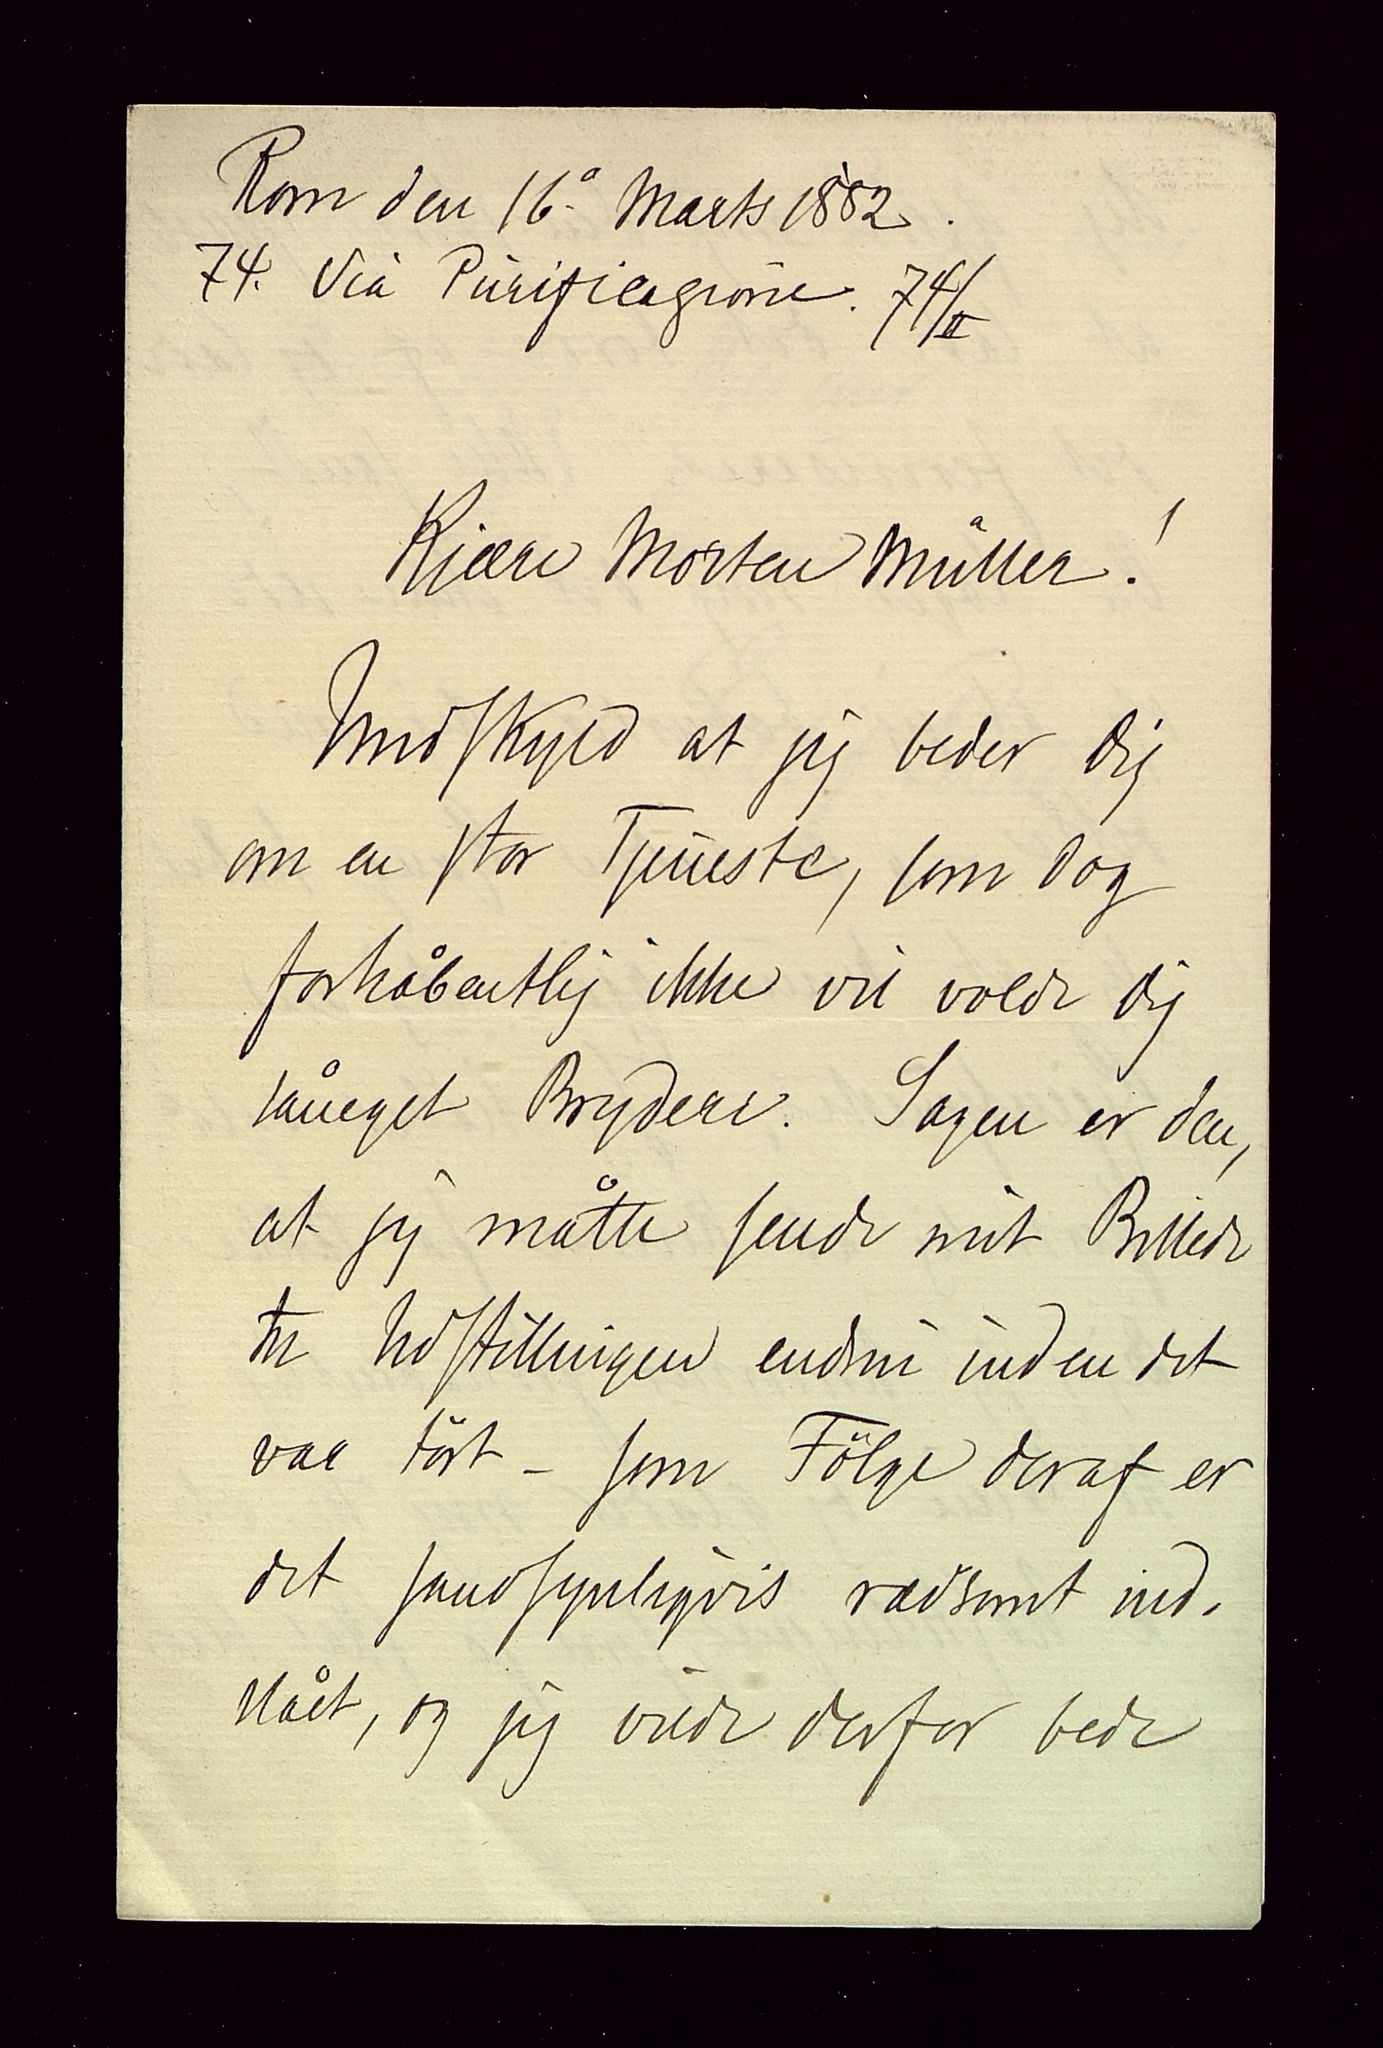 Rom den 16de Marts 1882.
74. Via Purificazione. 74/II
Kjære Morten Müller!
Undskyld at jeg beder dig
om en stor Tjeneste, som dog
forhåbentlig ikke vil volde dig
såmeget Bryderi. Sagen er den,
at jeg måtte sende mit Billede
til Udstillingen endnu inden det
var tört – som Fölge deraf er
det sandsynligvis rædsomt ind-
slået, og jeg vilde derfor bede